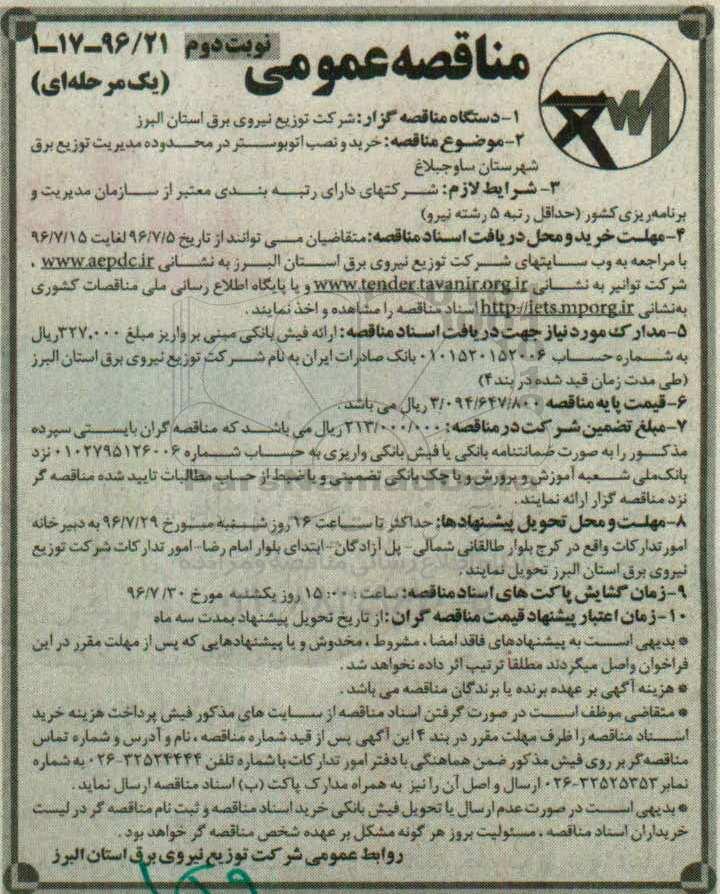 مناقصه عمومی نوبت دوم ۹۶/۲۱-۱۷-۱
(یک مرحله‌ای)
۱-دستگاه مناقصه گزار: شرکت توزیع نیروی برق استان البرز
۲-موضوع مناقصه: خرید و نصب اتوبوستر در محدوده مدیریت توزیع برق
شهرستان ساوجبلاغ
۳- شرایط لازم: شرکتهای دارای رتبه بندی معتبر از سازمان مدیریت و
برنامه‌ریزی کشور (حداقل رتبه ۵ رشته نیرو)
۴-مهلت خرید و محل دریافت اسناد مناقصه: متقاضیان می توانند از تاریخ ۹۶/۷/۵ لغایت ۹۶/۷/۱۵
با مراجعه به وب سایتهای شرکت توزیع نیروی برق استان البرز به نشانی www.aepdc.ir ،
شرکت توانیر به نشانی www.tender.tavanir.org.ir و یا پایگاه اطلاع رسانی ملی مناقصات کشوری
به‌نشانی http://iets.mporg.ir اسناد مناقصه را مشاهده و اخذ نمایند .
۵-مدارک مورد نیاز جهت دریافت اسناد مناقصه: ارائه فیش بانکی مبنی بر واریز مبلغ ۳۲۷,۰۰۰ ریال
به شماره حساب ۰۱۰۱۵۲۰۱۵۲۰۰۶ بانک صادرات ایران به نام شرکت توزیع نیروی برق استان البرز
(طی مدت زمان قید شده در بند ۴)
۶-قیمت پایه مناقصه ۳/۰۹۴/۶۴۷/۸۰۰ ریال می باشد .
۷-مبلغ تضمین شرکت در مناقصه: ۲۱۳/۰۰۰/۰۰۰ ریال می باشد که مناقصه گران بایستی سپرده
مذکور را به صورت ضمانتنامه بانکی یا فیش بانکی واریزی به حساب شماره ۰۱۰۲۷۹۵۱۲۶۰۰۶ نزد
بانک ملی شعبه آموزش و پرورش و یا چک بانکی تضمینی و یا ضبط از حساب مطالبات تایید شده مناقصه گر
نزد مناقصه گزار ارائه نمایند .
۸-مهلت و محل تحویل پیشنهادها: حداکثر تا ساعت ۱۶ روز شنبه مورخ ۹۶/۷/۲۹ به دبیرخانه
امور تدارکات واقع در کرج بلوار طالقانی شمالی- پل آزادگان- ابتدای بلوار امام رضا- امور تدارکات شرکت توزیع
نیروی برق استان البرز تحویل نمایند .
۹-زمان گشایش پاکت های اسناد مناقصه: ساعت ۱۵:۰۰ روز یکشنبه مورخ ۹۶/۷/۳۰
۱۰-زمان اعتبار پیشنهاد قیمت مناقصه گران : از تاریخ تحویل پیشنهاد بمدت سه ماه
* بدیهی است به پیشنهادهای فاقد امضا ، مشروط ، مخدوش و یا پیشنهادهایی که پس از مهلت مقرر در این
فراخوان واصل میگردند مطلقاً ترتیب اثر داده نخواهد شد .
* هزینه آگهی بر عهده برنده یا برندگان مناقصه می باشد .
* متقاضی موظف است در صورت گرفتن اسناد مناقصه از سایت های مذکور فیش پرداخت هزینه خرید
اسناد مناقصه را ظرف مهلت مقرر در بند ۴ این آگهی پس از قید شماره مناقصه ، نام و آدرس و شماره تماس
مناقصه‌گر بر روی فیش مذکور ضمن هماهنگی با دفتر امور تدارکات با شماره تلفن ۳۲۵۲۴۴۴۴-۰۲۶ به شماره
نمابر ۳۲۵۲۵۳۵۳-۰۲۶ ارسال و اصل آن را نیز به همراه مدارک پاکت (ب) اسناد مناقصه ارسال نماید .
* بدیهی است در صورت عدم ارسال یا تحویل فیش بانکی خرید اسناد مناقصه و ثبت نام مناقصه گر در لیست
خریداران اسناد مناقصه ، مسئولیت بروز هر گونه مشکل بر عهده شخص مناقصه گر خواهد بود .
روابط عمومی شرکت توزیع نیروی برق استان البرز